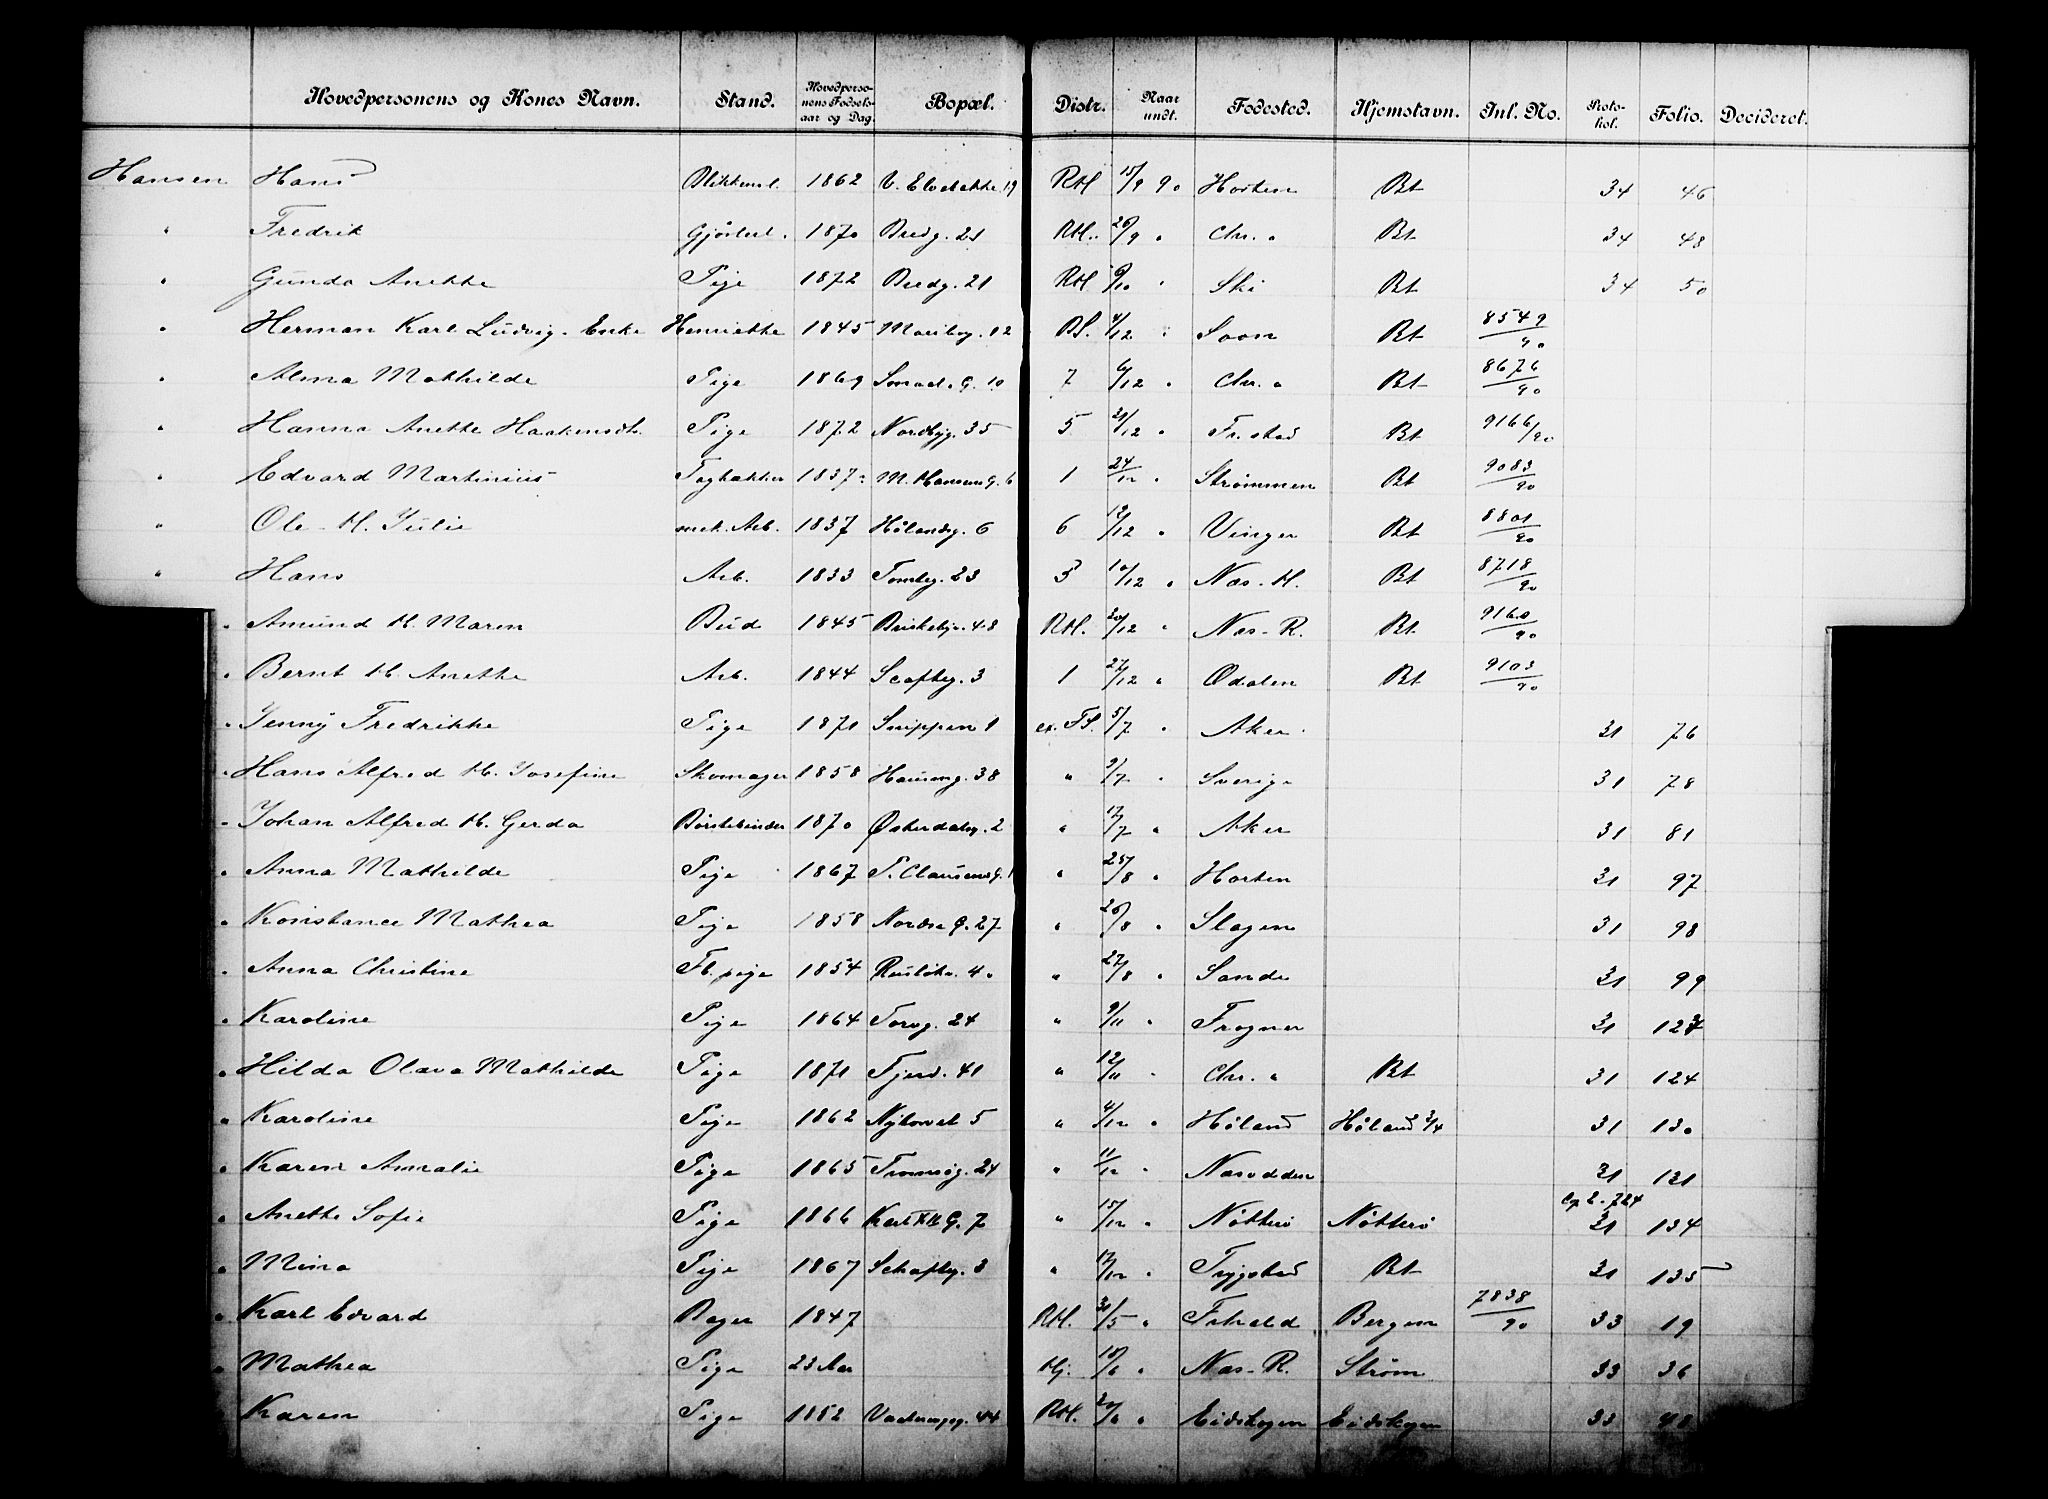 Hovedpersonens og Kones Navn. Stand. Hovedperso-nens Fødsels-aar og Dag. Bopæl. Distr. Naar undt. Fødested. Hjemstavn. Inl. No. Proto-kol. Folio. Decideret.
Hansen Hans Blikkensl. 1862 V. Elvebakke 19 RM 15/9 90 Horten Bt 34 46
" Fredrik Gjørtlerl. 1870 Bredg. 21 RM. 26/9 " Chr. a Bt 34 48
" Gunda Anette Pige 1872 Bredg. 21 RM 6/10 " Ski Bt 34 50
" Herman Karl Ludvig. Enke Henriette 1845 Maribog. 12 BS. 4/12 " Soon Bt 8549/90
" Alma Mathilde Pige 1869 Smaal. G. 10 7 6/12 " Chr. a Bt 8676/90
" Hanna Anette Haakensdt. Pige 1872 Nordbyg. 35 5 31/12 " Fr. stad Bt 9166/90
" Edvard Martinius Tagtækker 1837 M. Hansens G. 6 1 24/12 " Strømmen Bt 9083/90
" Ole - M. Julie snek. Arb. 1837 Hølandsg. 6 6 12/12 " Vinger Bt 8801/90
" Hans Arb. 1833 Tomteg. 23 3 10/12 " Næs - H. Bt 8718/90
" Amund M. Maren Bud 1845 Briskebyv. 48 RM. 30/12 " Næs - R. Bt 9160/90
" Bernt M. Anette Arb. 1844 Scaftig. 3 1 27/12 " Odalen Bt 9103/90
" Jenny Fredrikke Pige 1871 Snippen 1 ex. FS. 5/7 " Aker 31 76
" Hans Alfred M. Josefine Skomager 1858 Hausmg. 38 " 9/7 " Sverige 31 78
" Johan Alfred M. Gerda Børstebinder 1870 Østerdalsg. 2 " 17/7 " Aker 31 81
" Anna Mathilde Pige 1867 T. Clausens G. 1 " 25/8 " Horten 31 97
" Konstance Mathea Pige 1858 Nordre G. 27 " 26/8 " Slagen 31 98
" Anna Christine Fb. pige 1854 Rusløkv. 40 " 27/8 " Sande 31 99
" Karoline Pige 1864 Torvg. 24 " 9/11 " Frogner 31
" Hilda Olava Mathilde Pige 1871 Fjerd. 41 " 12/11 " Chr. a Bt 31 124
" Karoline Pige 1862 Nytorvet 5 " 4/12 " Høland Høland 3/4 31 130
" Karen Amalie Pige 1865 Tromsøg. 24 " 11/12 " Nesodden 31 131
" Anette Sofie Pige 1866 Karl XII G. 7 " 15/12 " Nøtterø Nøtterø cp 2. 724 31 134
" Mina Pige 1867 Schaftig. 3 " 17/12 " Trygstad Bt 31 135
" Karl Edvard Bager 1847 RM. 30/5 " F.hald Bergen 7838/90 33 19
" Mathea Pige 23 Aar Hj. 18/6 " Næs - R. Strøm 33 36
" Karen Pige 1852 Vaterlandsg. 44 RM. 20/6 " Eidskogen Eidskogen 33 48